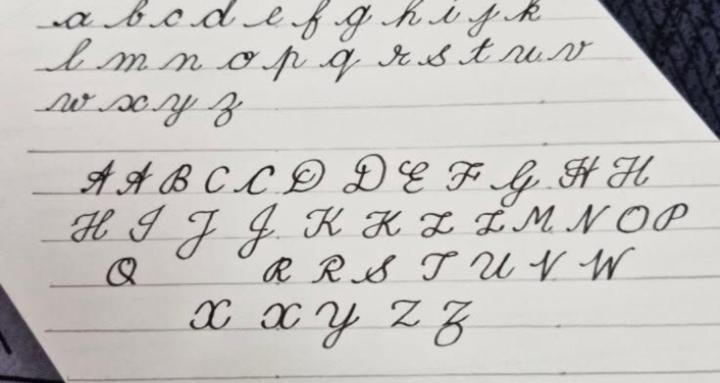 a b c d e f g h i j k
l m n o p q r s t u v
w x y z
A A B C C D D E F G H H
H I J J K K L L M N O P
Q R R S T U V W
X X Y Z Z